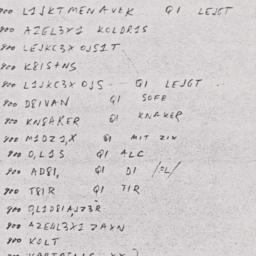 900 L1JKTMENAVEK QI LEJGT
900 AZEL3Y1 KOLDR1S
900 LEJKC3X OJS1T
900 K8IS+NS
900 L1JKC3X OJS QI LEJGT
900 D8IVAN QI SOFE
900 KNGAKER QI KNAKER
900 M1DZ1,X QI MIT ZIX
900 O,L1S QI ALC
900 AD81, QI D1 /=L/
900 T8IR QI TIR
900 QL1D8IAJZ3R
900 AZEOL3X1ZAXN
900 KOLT